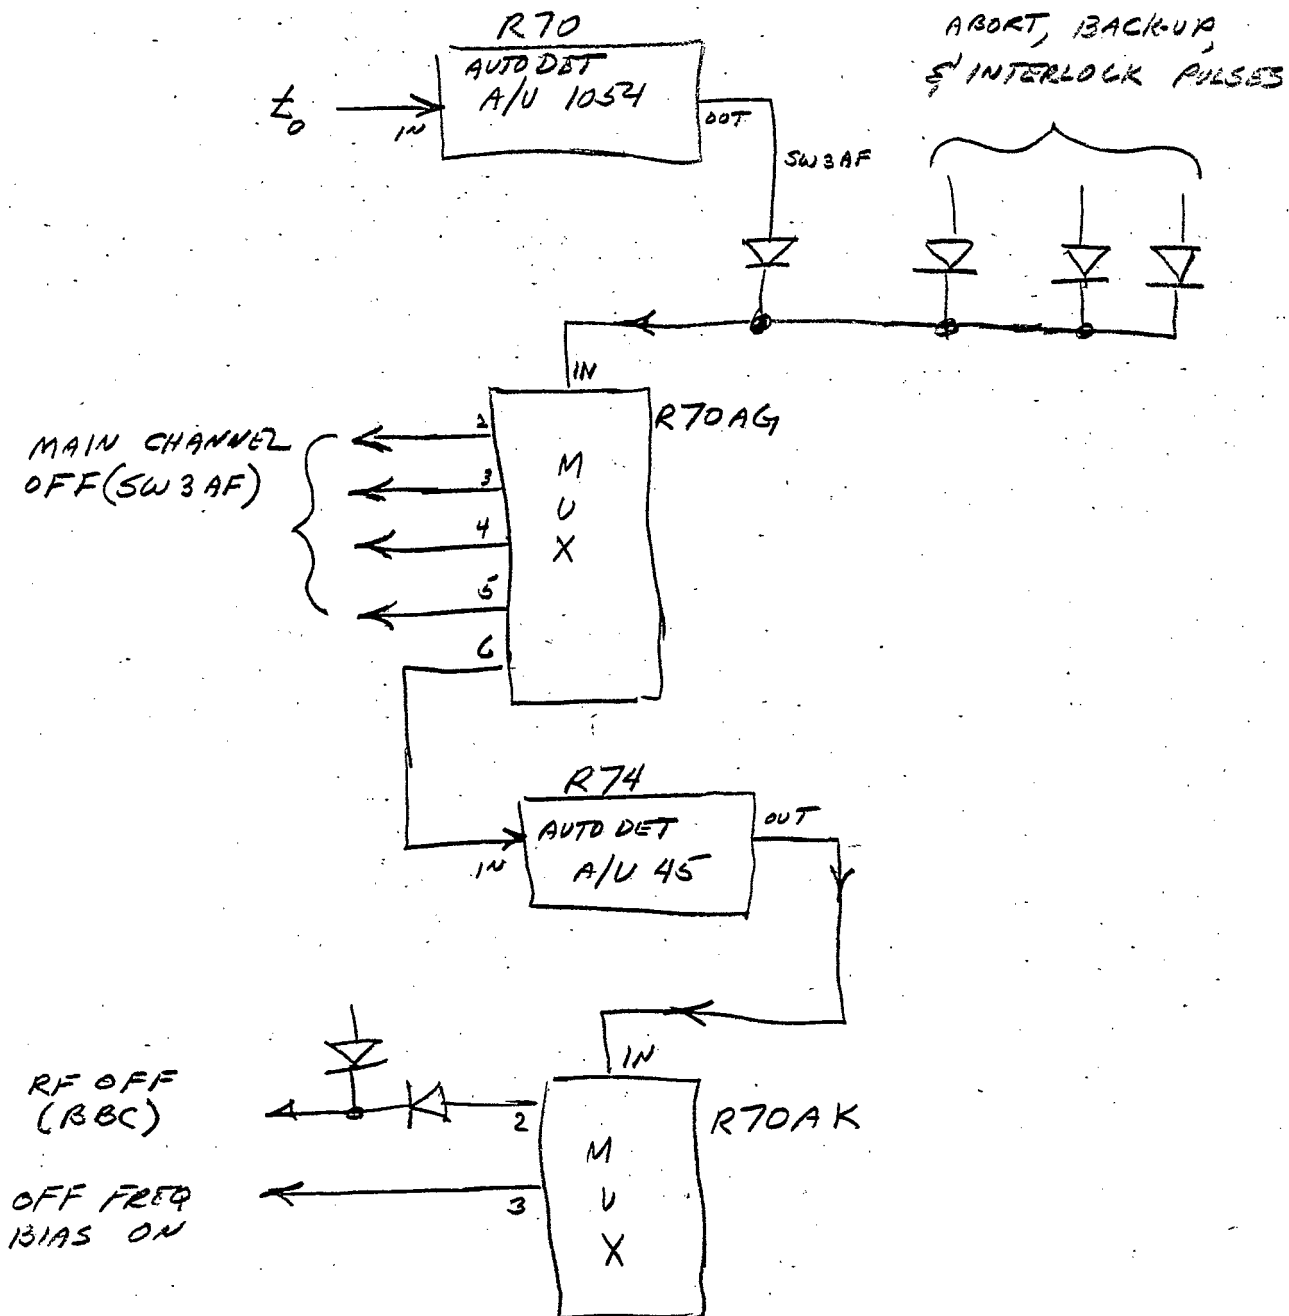 R70
AUTO DET
A/U 1054
t₀
IN
OUT
SW3AF
ABORT, BACK-UP,
& INTERLOCK PULSES
IN
R70AG
MUX
2
3
4
5
6
MAIN CHANNEL
OFF (SW3AF)
R74
AUTO DET
A/U 45
IN
OUT
IN
R70AK
MUX
2
3
RF OFF
(BBC)
OFF FREQ
BIAS ON